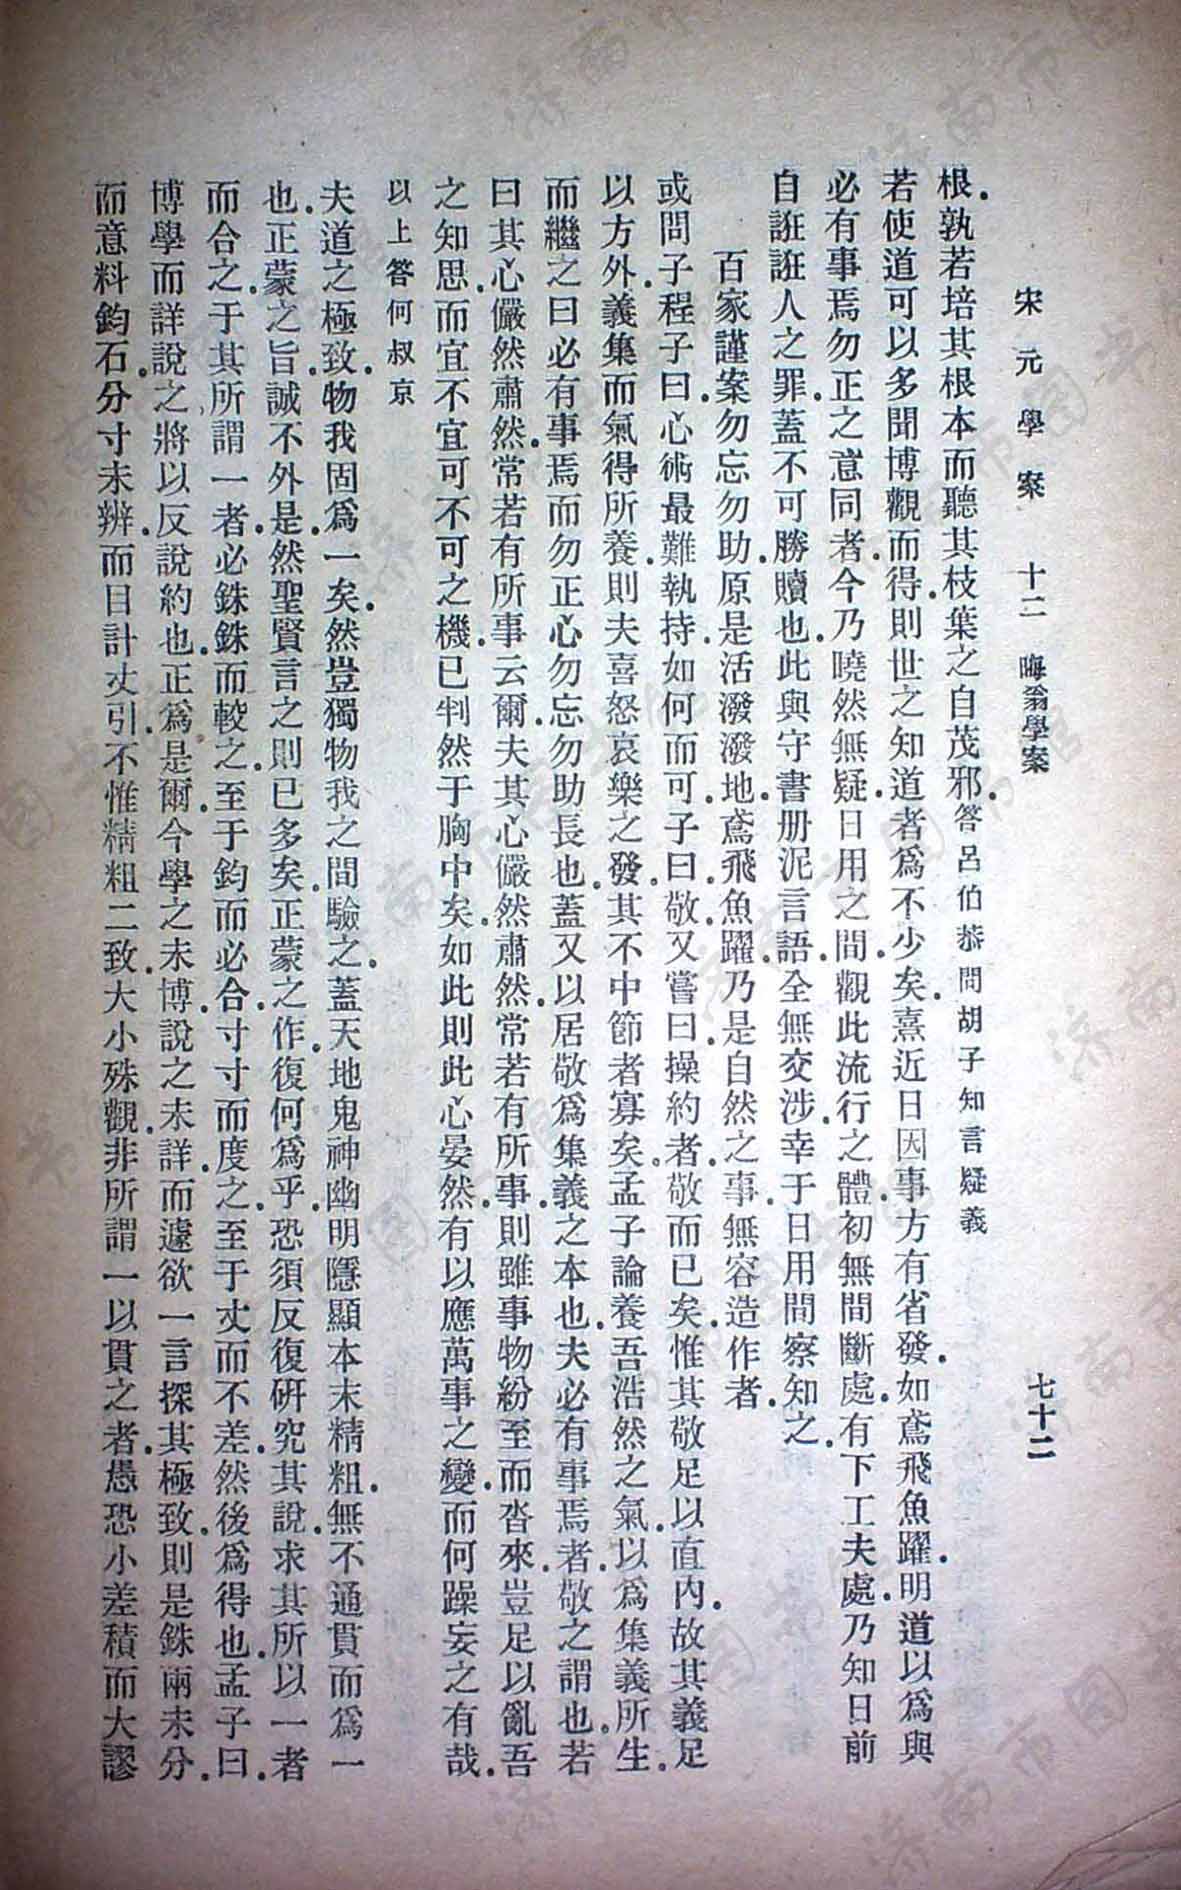 宋元學案 十二 晦翁學案 七十二
根.孰若培其根本而聽其枝葉之自茂邪.答呂伯恭問胡子知言疑義
若使道可以多聞博觀而得.則世之知道者爲不少矣.熹近日因事方有省發.如鳶飛魚躍.明道以爲與
必有事焉勿正之意同者.今乃曉然無疑.日用之間.觀此流行之體.初無間斷處.有下工夫處.乃知日前
自誑誑人之罪.蓋不可勝贖也.此與守書册泥言語.全無交涉.幸于日用間察知之.
百家謹案.勿忘勿助.原是活潑潑地.鳶飛魚躍.乃是自然之事.無容造作者.
或問子程子曰.心術最難執持.如何而可.子曰.敬.又嘗曰.操約者.敬而已矣.惟其敬足以直內.故其義足
以方外.義集而氣得所養.則夫喜怒哀樂之發.其不中節者寡矣.孟子論養吾浩然之氣.以爲集義所生.
而繼之曰必有事焉而勿正心勿忘勿助長也.蓋又以居敬爲集義之本也.夫必有事焉者.敬之謂也.若
曰其心儼然肅然.常若有所事云爾.夫其心儼然肅然.常若有所事.則雖事物紛至而沓來.豈足以亂吾
之知思.而宜不宜可不可之機.已判然于胸中矣.如此則此心晏然.有以應萬事之變.而何躁妄之有哉.
以上答何叔京
夫道之極致.物我固爲一矣.然豈獨物我之間驗之.蓋天地鬼神幽明隱顯本末精粗.無不通貫而爲一
也.正蒙之旨.誠不外是.然聖賢言之則已多矣.正蒙之作.復何爲乎.恐須反復研究其說.求其所以一者
而合之.于其所謂一者.必銖銖而較之.至于鈞而必合.寸寸而度之.至于丈而不差.然後爲得也.孟子曰.
博學而詳說之.將以反說約也.正爲是爾.今學之未博.說之未詳.而遽欲一言探其極致.則是銖兩未分.
而意料鈞石.分寸未辨.而目計丈引.不惟精粗二致.大小殊觀.非所謂一以貫之者.愚恐小差積而大謬